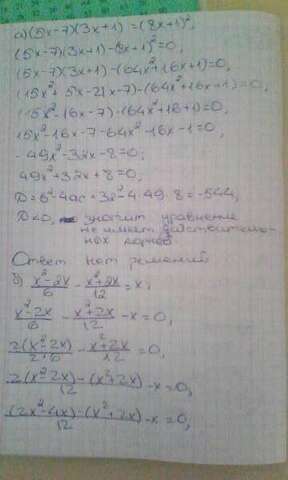 а) (5x-7)(3x+1)=(8x+1)²,
(5x-7)(3x+1)-(8x+1)²=0,
(5x-7)(3x+1)-(64x²+16x+1)=0,
(15x²+5x-21x-7)-(64x²+16x+1)=0,
(15x²-16x-7)-(64x²+16+1)=0,
15x²-16x-7-64x²-16x-1=0,
-49x²-32x-8=0;
49x²+32x+8=0;
D=b²-4ac=32²-4·49·8=-544,
D<0, значит уравнение
не имеет действитель-
ных корней
Ответ нет решений
б) (x²-2x)/6 - (x²+2x)/12 = x;
(x²-2x)/6 - (x²+2x)/12 - x=0,
2(x²-2x)/2·6 - (x²+2x)/12 =0,
2(x²-2x)-(x²+2x)/12 - x=0,
(2x²-4x)-(x²+2x)/12 - x=0,